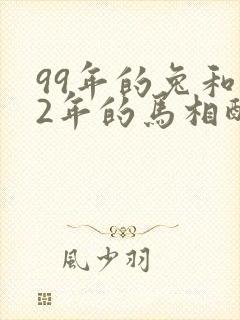 99年的兔和
2年的馬相
風少羽